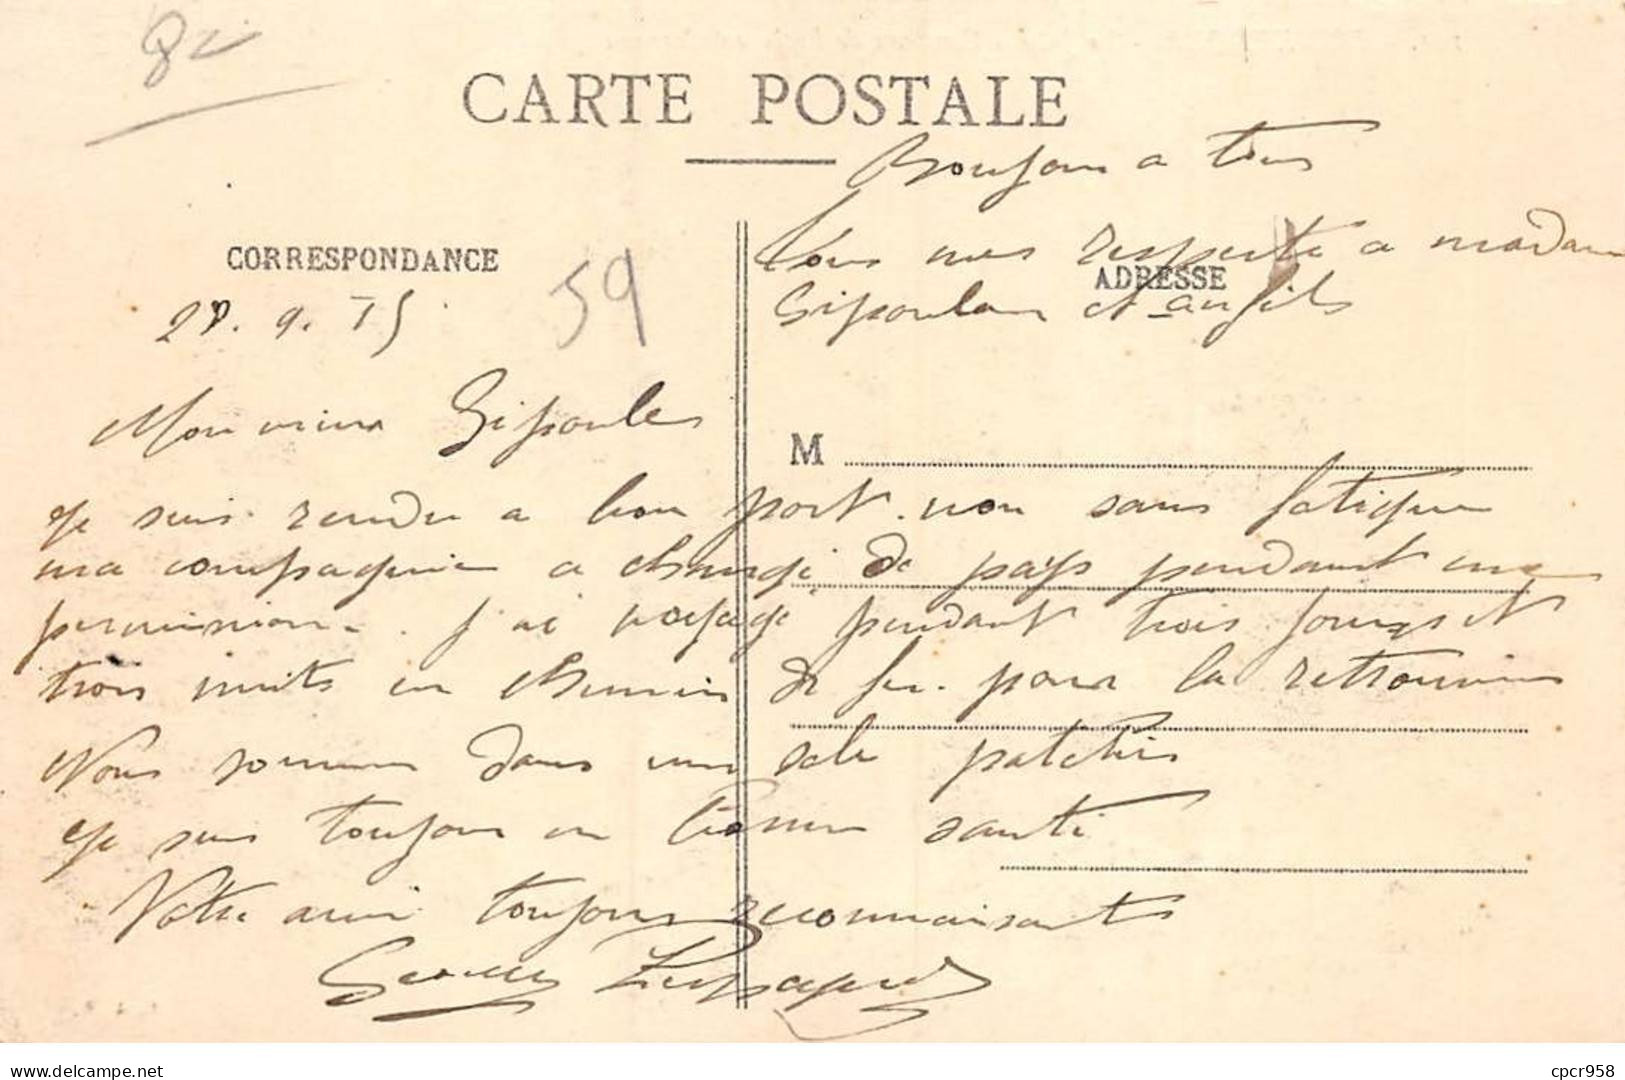 82
CARTE POSTALE
Boujour a tous
Tous mes respects a madame
Gipoulou et au fils
CORRESPONDANCE
59
ADRESSE
28. 9. 15
Mon vieux Gipoulou
M
Je suis rendu a bon port. non sans fatigue
ma compagnie a changé de pays pendant ma
permission. J'ai voyagé pendant trois jours et
trois nuits en chemin de fer. pour la retrouver
Nous sommes dans un sale patelin
Je suis toujour en bonne santé
Votre ami toujours reconnaisant
delcampe.net
cpcr958